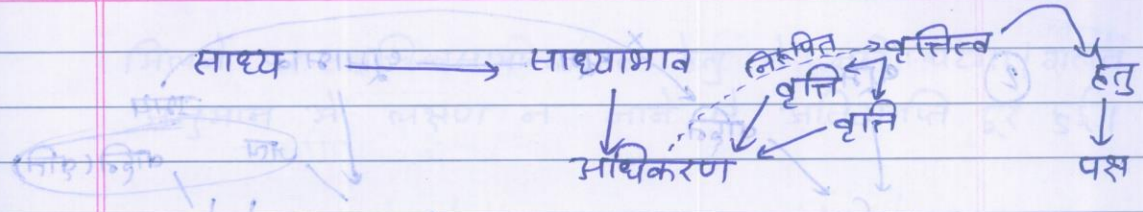 साध्य → साध्याभाव निरूपित → वृत्तित्व
वृत्ति हेतु
वृत्ति
अधिकरण पक्ष